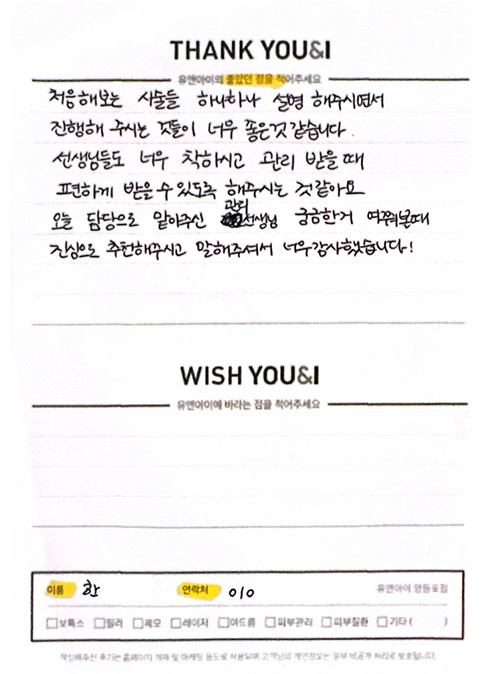 THANK YOU&I
유앤아이의 좋았던 점을 적어주세요
처음해보는 시술들 하나하나 설명 해주시면서
진행해 주시는 것들이 너무 좋은것 같습니다.
선생님들도 너무 착하시고 관리 받을 때
편하게 받을 수 있도록 해주시는 것 같아요
관리
오늘 담당으로 맡아주신 선생님 궁금한거 여쭤볼때
진심으로 추천해주시고 말해주셔서 너무감사했습니다!
WISH YOU&I
유앤아이에 바라는 점을 적어주세요
이름 한 연락처 010 유앤아이 영등포점
보톡스 필러 제모 레이저 여드름 피부관리 피부질환 기타 ( )
작성해주신 후기는 홈페이지 게재 및 마케팅 용도로 사용되며 고객님의 개인정보는 일부 비공개 처리로 보호됩니다.